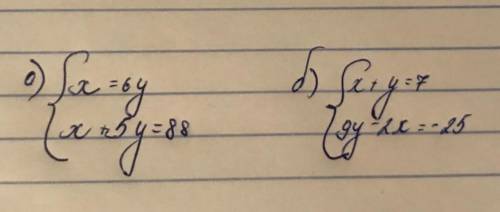 а) { x = 6y
x + 5y = 88
б) { x + y = 7
9y - 2x = -25